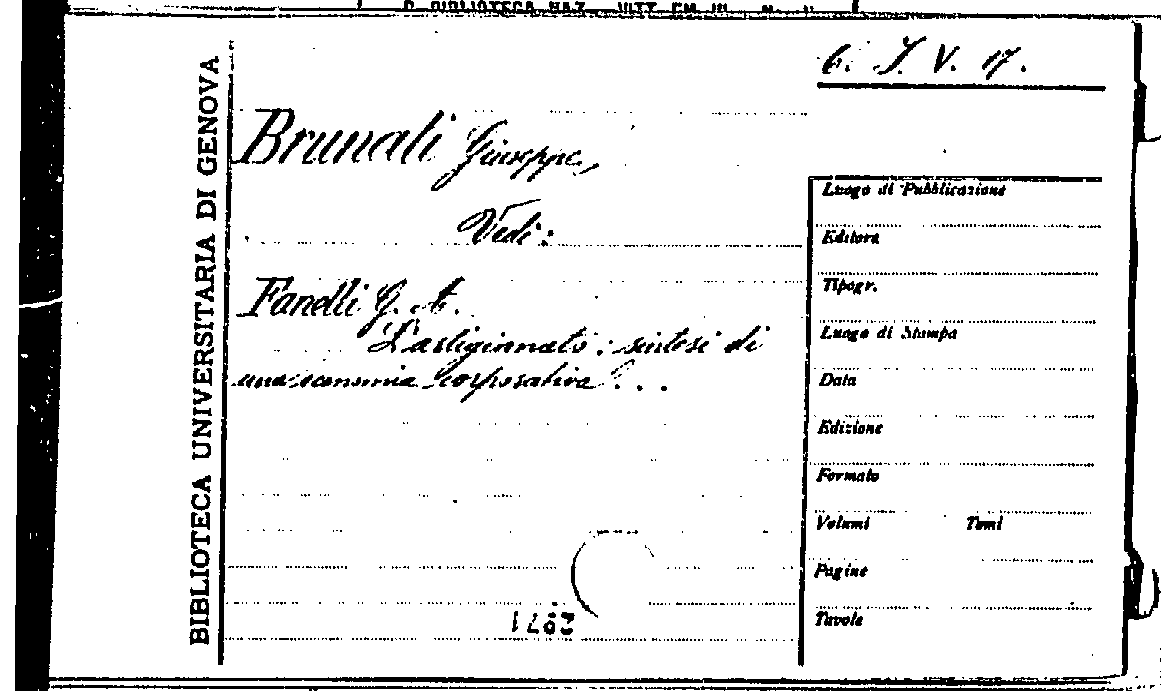 BIBLIOTECA UNIVERSITARIA DI GENOVA
6. I. V. 17.
Brunati Giuseppe,
Vedi:
Fanelli G. A.
L'artigianato: sintesi di
una economia corporativa...
Luogo di Pubblicazione
Editore
Tipogr.
Luogo di Stampa
Data
Edizione
Formato
Volumi Tomi
Pagine
Tavole